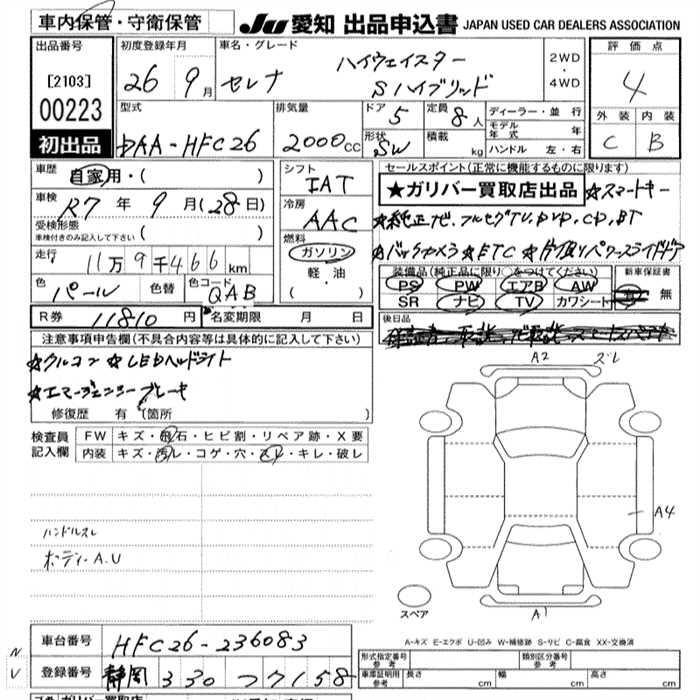 車内保管・守衛保管
JU 愛知 出品申込書 JAPAN USED CAR DEALERS ASSOCIATION
出品番号
[2103]
00223
初出品
初度登録年月
26 9月
車名・グレード
セレナ ハイウェイスター
Sハイブリッド
2WD
・
4WD
評価点
4
外装 内装
C B
型式
DAA-HFC26
排気量
2000cc
ドア 5
形状 SW
定員 8人
積載 kg
ディーラー・並行
モデル年式 年
ハンドル 左・右
車歴
自家用・( )
車検
R7年 9月(28日)
受検形態
車検付きのみ記入して下さい ( )
走行
11万9千466km
色
パール
色替
色コード
QAB
シフト
IAT
冷房
AAC
燃料
ガソリン
軽・油
( )
セールスポイント(正常に機能するものに限ります)
★ガリバー買取店出品 ★スマートキー
★純正ナビ、フルセグTV、DVD、CD、BT
★バックカメラ ★ETC ★片側パワースライドドア
装備品(純正品に限り○をつけてください)
PS PW エアB AW
SR ナビ TV カワシート
新車保証書
有 無
R券 11810円
名変期限 月 日
後日品
注意事項申告欄(不具合内容等は具体的に記入して下さい)
★クルコン ★LEDヘッドライト
★エマージェンシーブレーキ
修復歴 有 (箇所 )
検査員
記入欄
FW キズ・飛石・ヒビ割・リペア跡・X要
内装 キズ・汚レ・コゲ・穴・スレ・キレ・破レ
ハンドルスレ
ボディーA.U
A2 ズレ
A4
A1
スペア
A-キズ E-エクボ U-凹み W-補修跡 S-サビ C-腐食 XX-交換済
車台番号 HFC26-236083
登録番号 静岡 330 つ 7158
N
V
形式指定番号
参考
類別区分番号
参考
車庫証明用
参考
長さ cm 幅 cm 高さ cm
ガリバー買取店